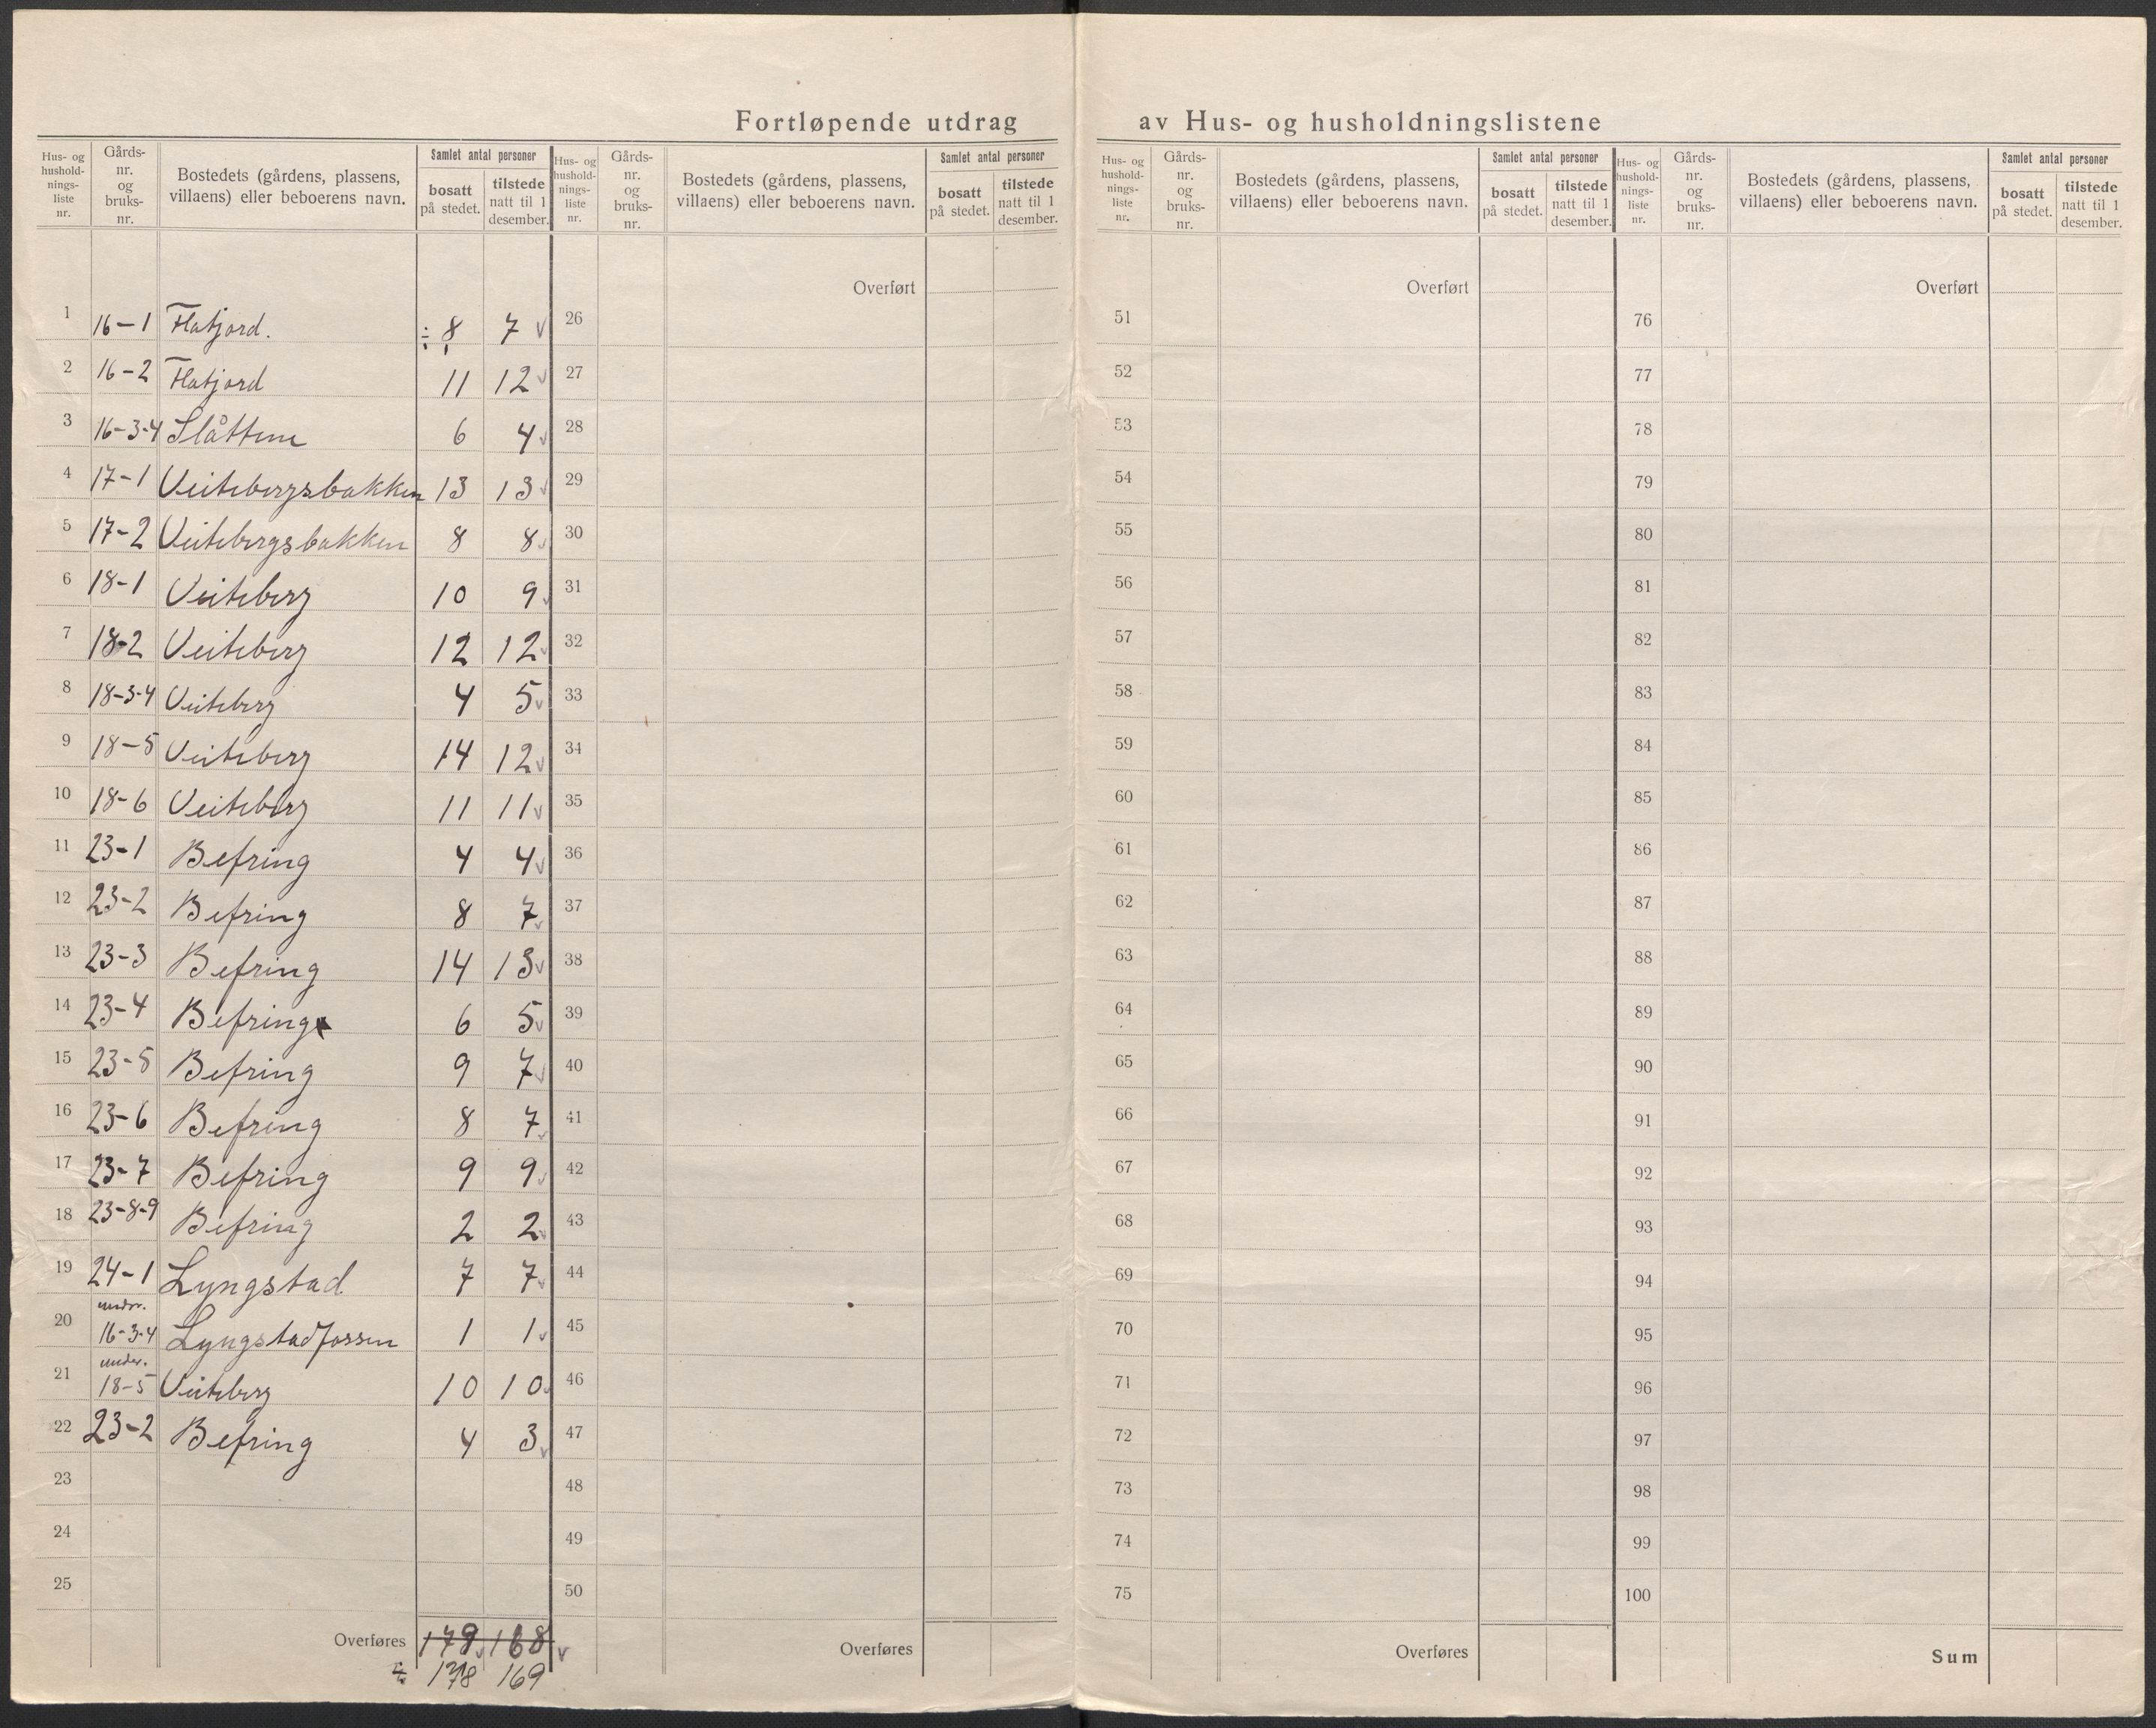 Fortløpende utdrag av Hus- og husholdningslistene
Hus- og hushold-nings-liste nr. | Gårds-nr. og bruks-nr. | Bostedets (gårdens, plassens, villaens) eller beboerens navn. | Samlet antal personer | bosatt på stedet. | tilstede natt til 1 desember.
1 16-1 Flatjord. ÷ 8 7 v
2 16-2 Flatjord 11 12 v
3 16-3-4 Slåttene 6 4 v
4 17-1 Veitebergsbakken 13 13 v
5 17-2 Veitebergsbakken 8 8 v
6 18-1 Veiteberg 10 9 v
7 18-2 Veiteberg 12 12 v
8 18-3-4 Veiteberg 4 5 v
9 18-5 Veiteberg 14 12 v
10 18-6 Veiteberg 11 11 v
11 23-1 Befring 4 4 v
12 23-2 Befring 8 7 v
13 23-3 Befring 14 13 v
14 23-4 Befring 6 5 v
15 23-5 Befring 9 7 v
16 23-6 Befring 8 7 v
17 23-7 Befring 9 9 v
18 23-8-9 Befring 2 2 v
19 24-1 Lyngstad 7 7 v
20 under. 16-3-4 Lyngstadfossen 1 1 v
21 under. 18-5 Veiteberg 10 10 v
22 23-2 Befring 4 3 v
23
24
25
Overføres 179 v 168 v
178 169
Hus- og hushold-nings-liste nr. | Gårds-nr. og bruks-nr. | Bostedets (gårdens, plassens, villaens) eller beboerens navn. | Samlet antal personer | bosatt på stedet. | tilstede natt til 1 desember.
Overført
26
27
28
29
30
31
32
33
34
35
36
37
38
39
40
41
42
43
44
45
46
47
48
49
50
Overføres
Hus- og hushold-nings-liste nr. | Gårds-nr. og bruks-nr. | Bostedets (gårdens, plassens, villaens) eller beboerens navn. | Samlet antal personer | bosatt på stedet. | tilstede natt til 1 desember.
Overført
51
52
53
54
55
56
57
58
59
60
61
62
63
64
65
66
67
68
69
70
71
72
73
74
75
Overføres
Hus- og hushold-nings-liste nr. | Gårds-nr. og bruks-nr. | Bostedets (gårdens, plassens, villaens) eller beboerens navn. | Samlet antal personer | bosatt på stedet. | tilstede natt til 1 desember.
Overført
76
77
78
79
80
81
82
83
84
85
86
87
88
89
90
91
92
93
94
95
96
97
98
99
100
Sum